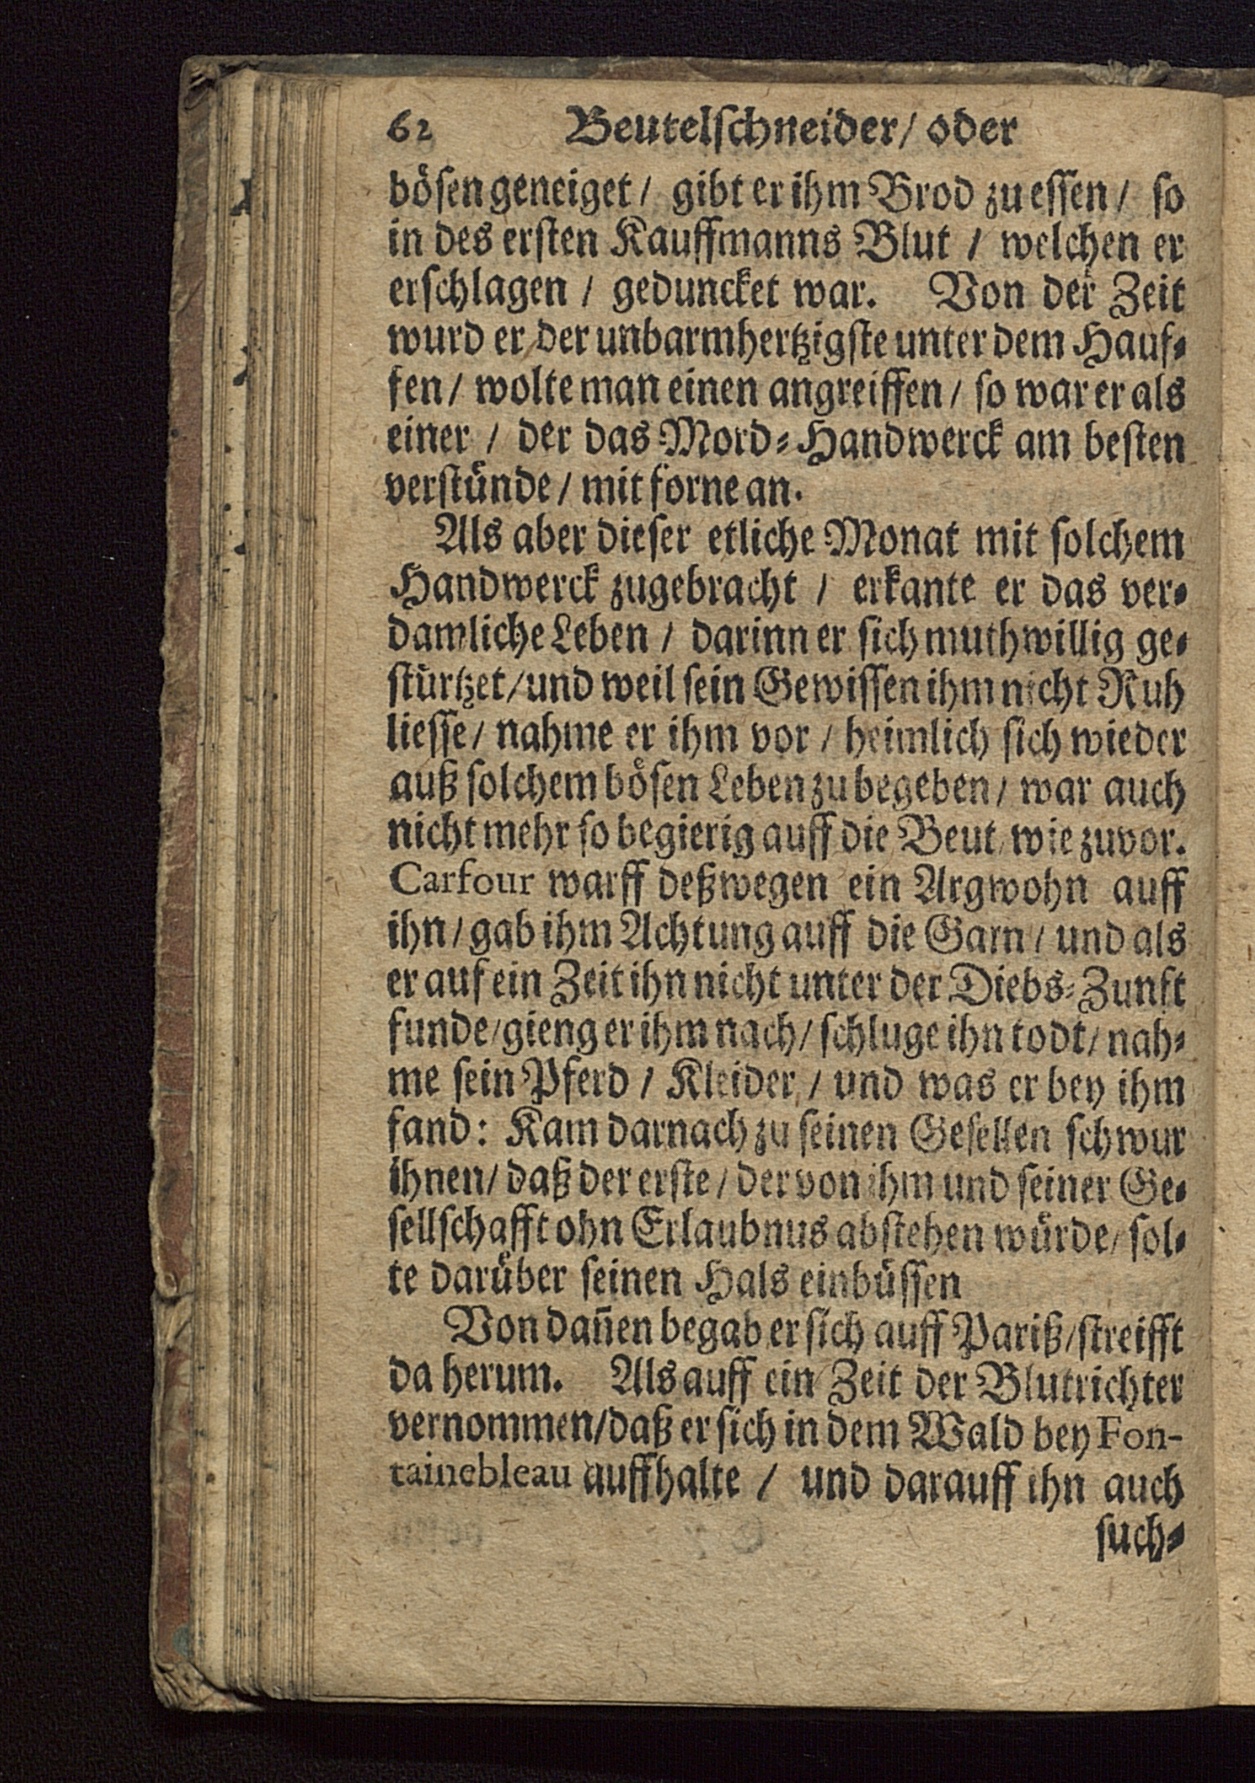 62 Beutelschneider/ oder
bösen geneiget/ gibt er ihm Brod zu essen/ so
in des ersten Kauffmanns Blut / welchen er
erschlagen / geduncket war. Von der Zeit
wurd er der unbarmhertzigste unter dem Hauf-
fen/ wolte man einen angreiffen/ so war er als
einer / der das Mord-Handwerck am besten
verstünde/ mit forne an.
Als aber dieser etliche Monat mit solchem
Handwerck zugebracht / erkante er das ver-
damliche Leben / darinn er sich muthwillig ge-
stürtzet/und weil sein Gewissen ihm nicht Ruh
liesse/ nahme er ihm vor / heimlich sich wieder
auß solchem bösen Leben zu begeben/ war auch
nicht mehr so begierig auff die Beut wie zuvor.
Carfour warff deßwegen ein Argwohn auff
ihn/ gab ihm Achtung auff die Garn/ und als
er auf ein Zeit ihn nicht unter der Diebs-Zunft
funde/gieng er ihm nach/ schluge ihn todt/ nah-
me sein Pferd / Kleider / und was er bey ihm
fand: Kam darnach zu seinen Gesellen schwur
ihnen/ daß der erste/ der von ihm und seiner Ge-
sellschafft ohn Erlaubnus abstehen würde/ sol-
te darüber seinen Hals einbüssen
Von dañen begab er sich auff Pariß/streifft
da herum. Als auff ein Zeit der Blutrichter
vernommen/daß er sich in dem Wald bey Fon-
tainebleau auffhalte / und darauff ihn auch
such-